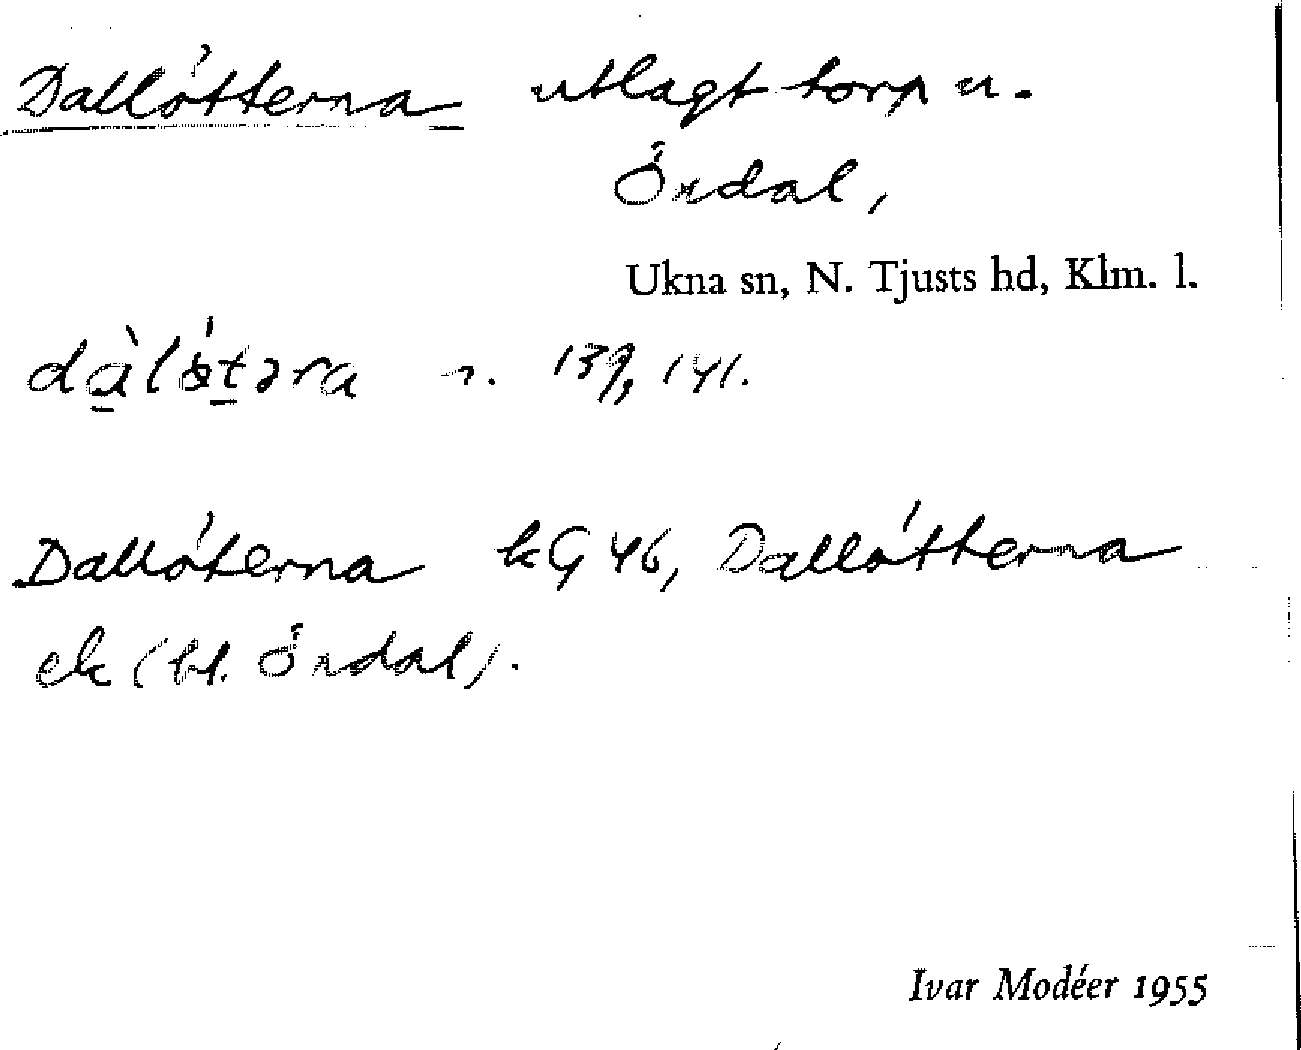 Dallötterna utlagt torp u.
Ördal,
Ukna sn, N. Tjusts hd, Klm. l.
139, 141.
Dallöterna kG 46, Dallötterna
ek (bl. Ördal).
Ivar Modéer 1955